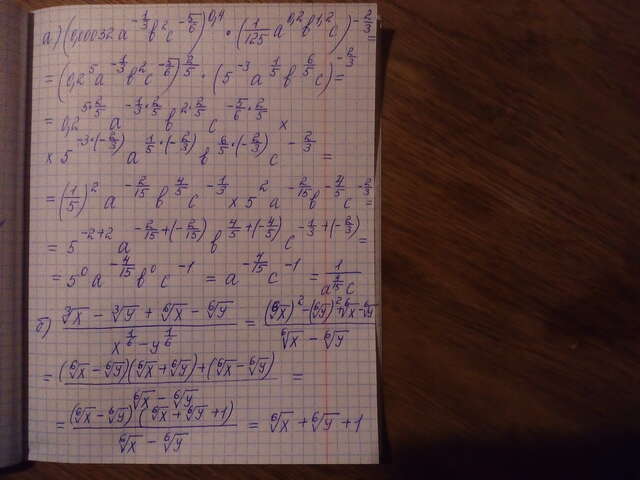 а) (0,00032 a^{-1/3} b^2 c^{-5/6})^{0,4} · (1/125 a^{0,2} b^{1,2} c)^{-2/3} =
= (0,2^5 a^{-1/3} b^2 c^{-5/6})^{2/5} · (5^{-3} a^{1/5} b^{6/5} c)^{-2/3} =
= 0,2^{5·2/5} a^{-1/3·2/5} b^{2·2/5} c^{-5/6·2/5} ×
× 5^{-3·(-2/3)} a^{1/5·(-2/3)} b^{6/5·(-2/3)} c^{-2/3} =
= (1/5)^2 a^{-2/15} b^{4/5} c^{-1/3} × 5^2 a^{-2/15} b^{-4/5} c^{-2/3} =
= 5^{-2+2} a^{-2/15+(-2/15)} b^{4/5+(-4/5)} c^{-1/3+(-2/3)} =
= 5^0 a^{-4/15} b^0 c^{-1} = a^{-4/15} c^{-1} = 1/(a^{4/15} c)
б) (∛x - ∛y + ⁶√x - ⁶√y)/(x^{1/6} - y^{1/6}) = ((⁶√x)^2 - (⁶√y)^2 + ⁶√x - ⁶√y)/(⁶√x - ⁶√y)
= ((⁶√x - ⁶√y)(⁶√x + ⁶√y) + (⁶√x - ⁶√y))/(⁶√x - ⁶√y) =
= ((⁶√x - ⁶√y)(⁶√x + ⁶√y + 1))/(⁶√x - ⁶√y) = ⁶√x + ⁶√y + 1